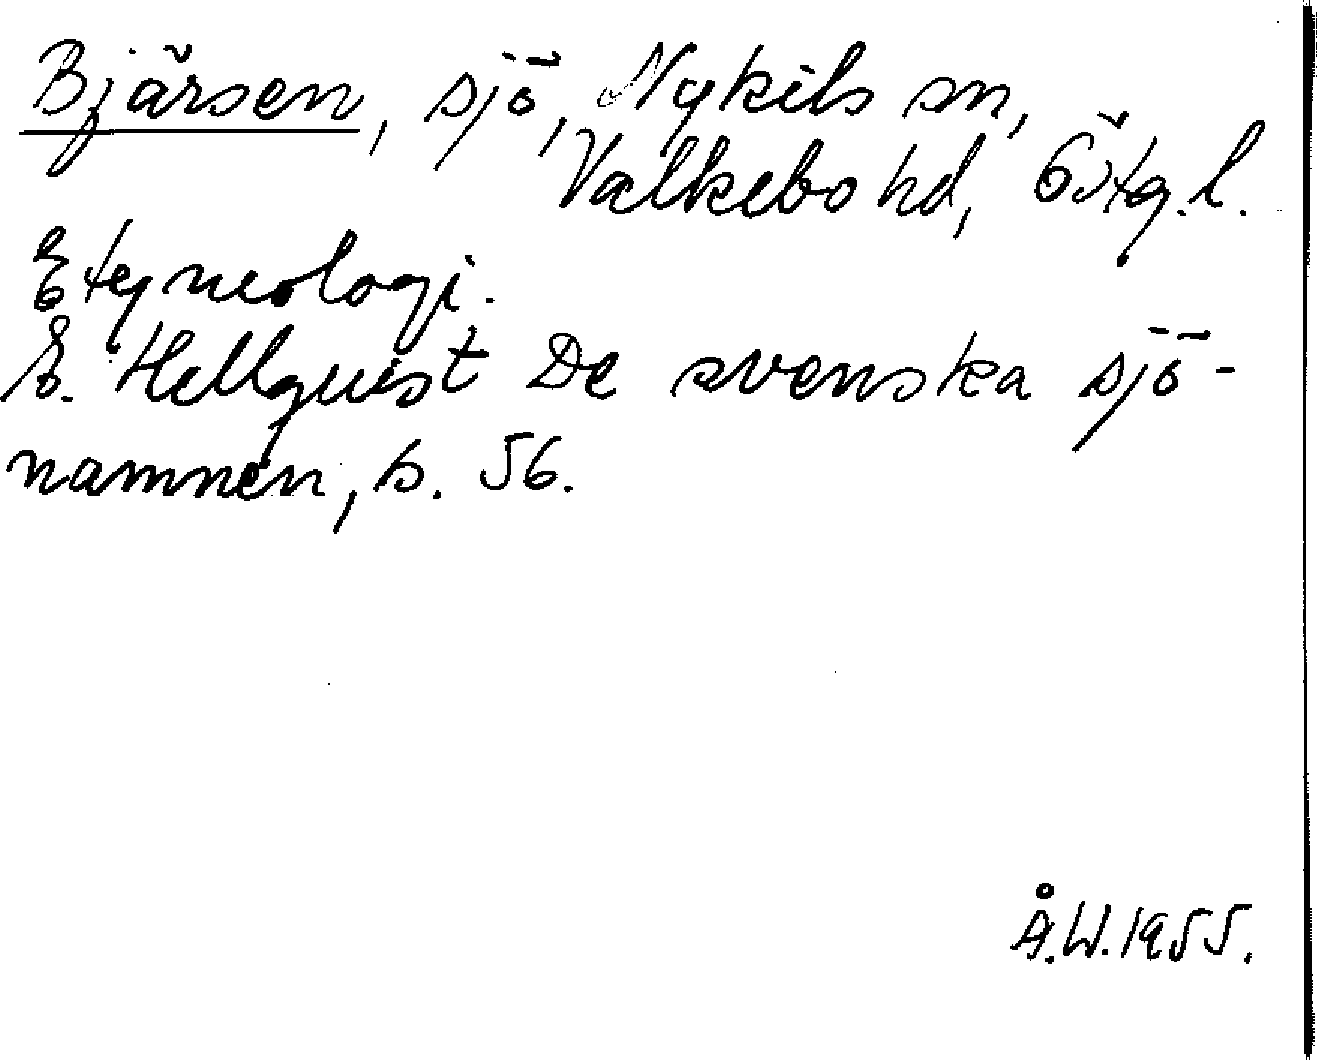 Bjärsen, sjö, Nykils sn,
Valkebo hd, Östg.l.
Etymologi.
E. Hellquist De svenska sjö-
namnen, s. 56.
Å.W.1955.